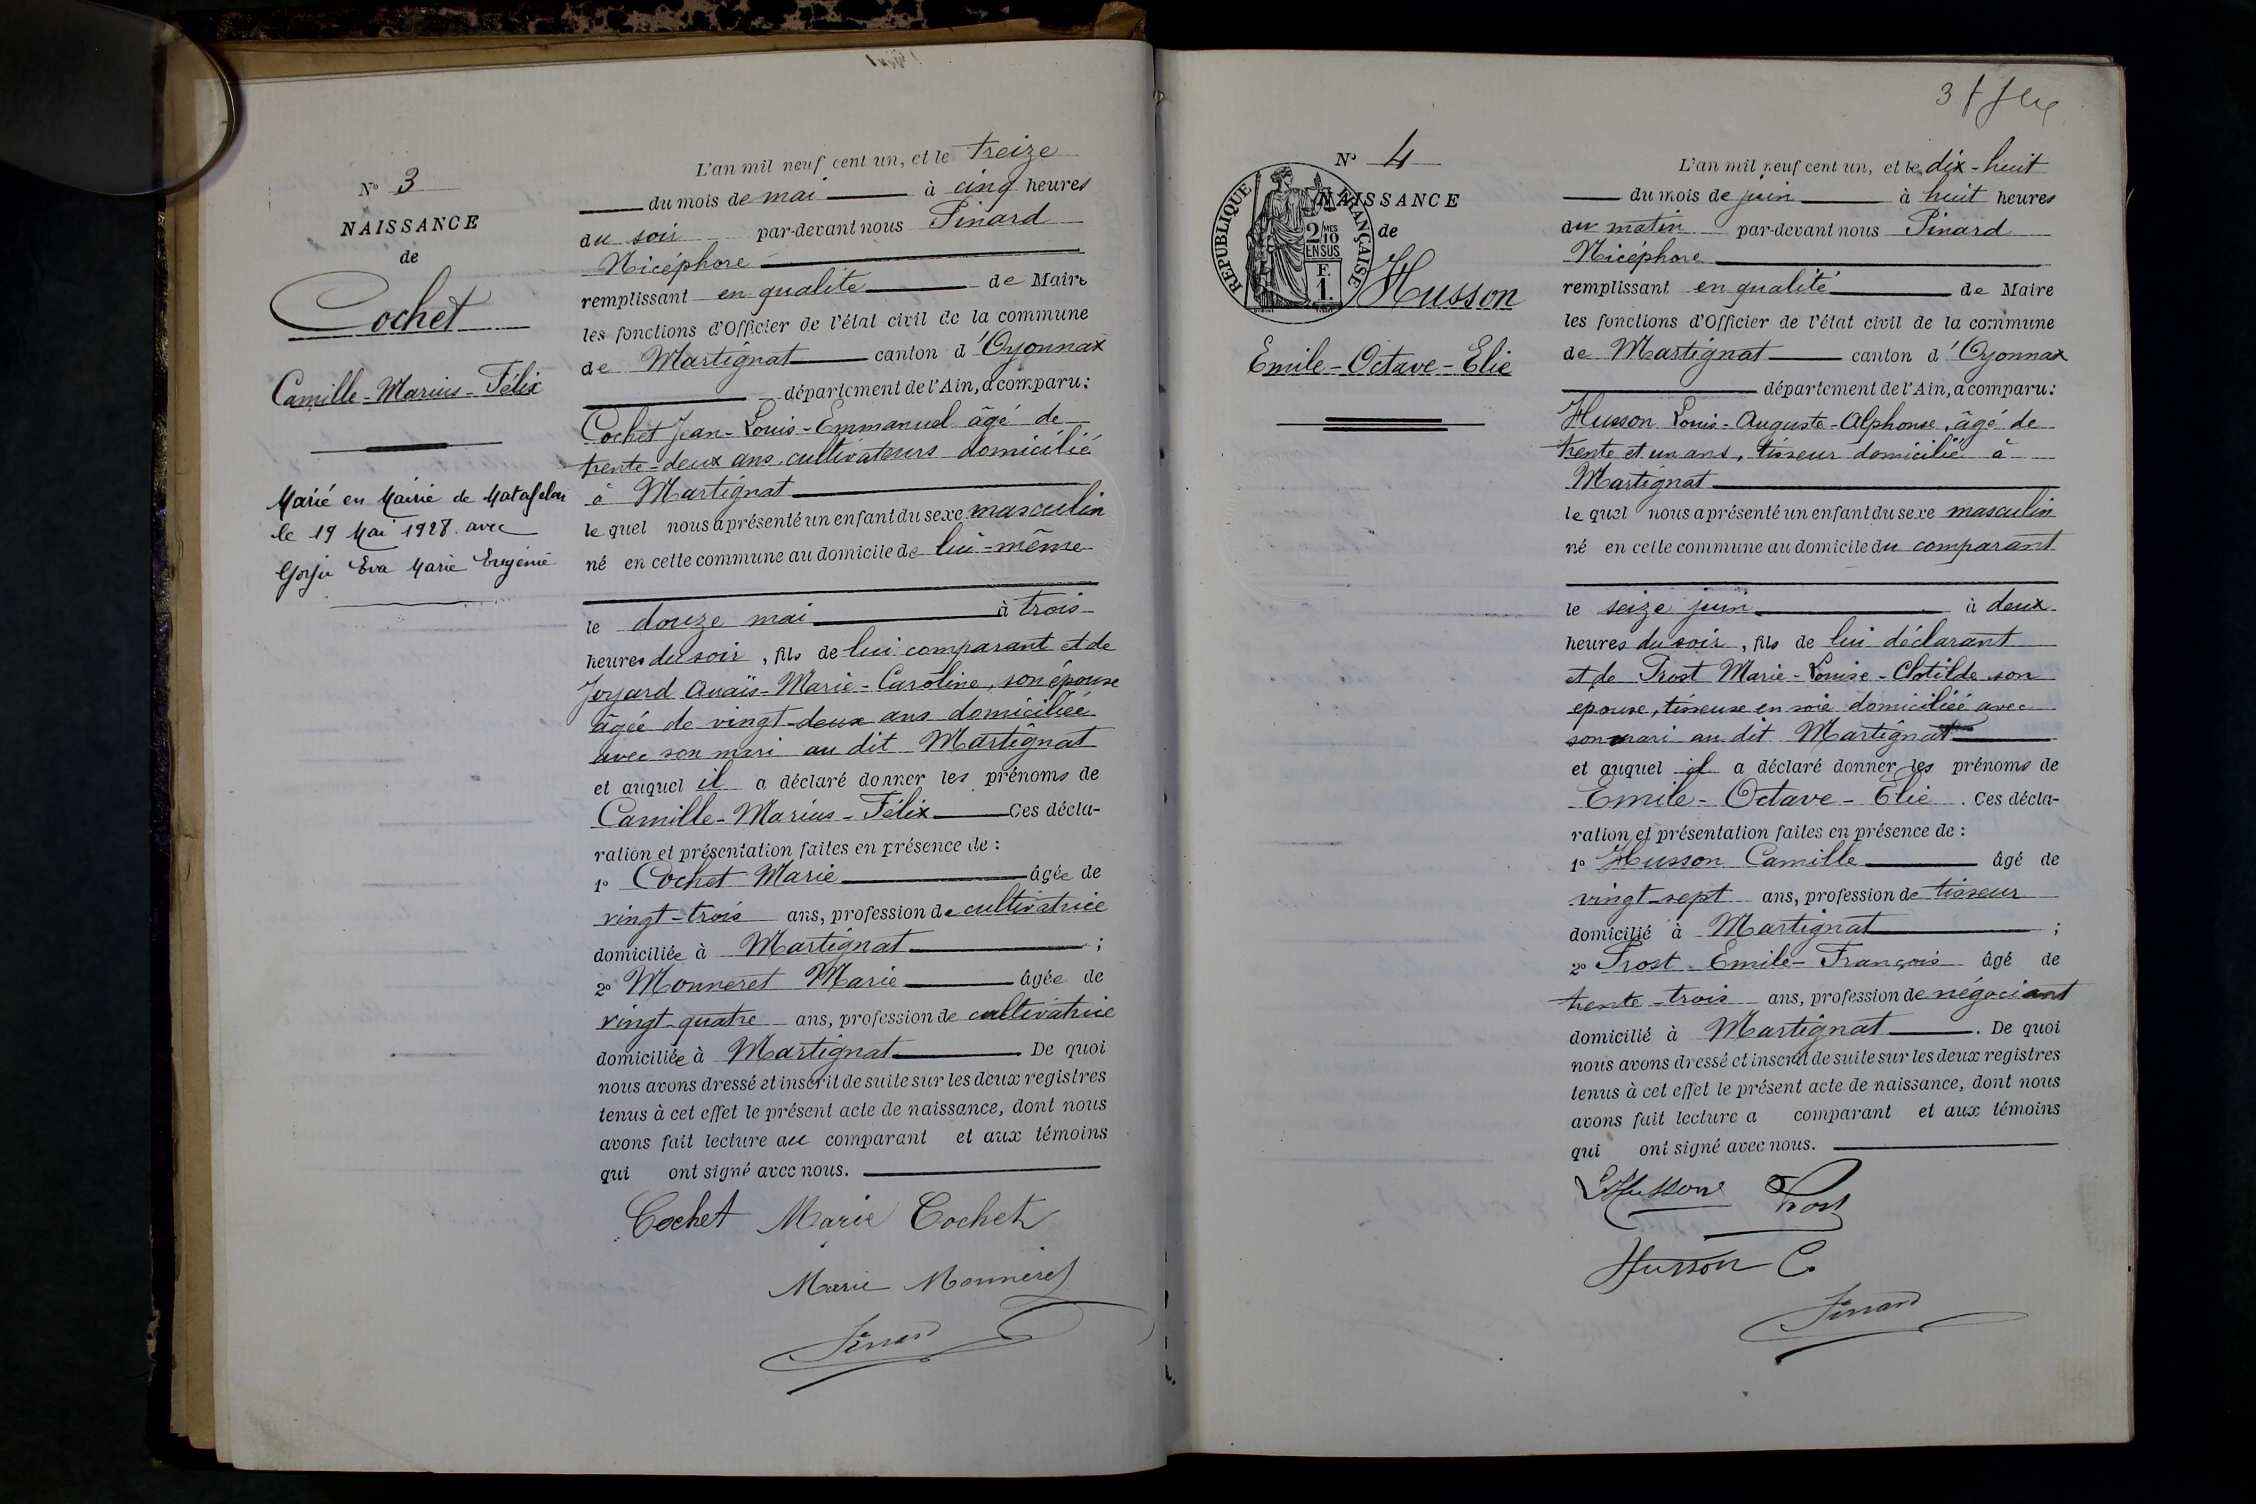 N° 3
NAISSANCE
de
Cochet
Camille-Marius-Félix
Marié en Mairie de Matafelon
le 19 Mai 1928 avec
Eva Marie Eugénie
L'an mil neuf cent un, et le treize
du mois de mai à cinq heures
du soir par-devant nous Pinard
Nicéphore
remplissant en qualité de Maire
les fonctions d'Officier de l'état civil de la commune
de Martignat canton d'Oyonnax
département de l'Ain, a comparu:
Cochet Jean-Louis-Emmanuel âgé de
trente-deux ans cultivateurs domicilié
à Martignat
lequel nous a présenté un enfant du sexe masculin
né en cette commune au domicile de lui-même
le douze mai à trois
heures du soir, fils de lui comparant et de
Joyard Anaïs-Marie-Caroline, son épouse
âgée de vingt-deux ans domiciliée
avec son mari au dit Martignat
et auquel il a déclaré donner les prénoms de
Camille-Marius-Félix Ces décla-
ration et présentation faites en présence de :
1° Cochet Marie âgée de
vingt-trois ans, profession de cultivatrice
domiciliée à Martignat ;
2° Monneret Marie âgée de
vingt-quatre ans, profession de cultivatrice
domiciliée à Martignat De quoi
nous avons dressé et inscrit de suite sur les deux registres
tenus à cet effet le présent acte de naissance, dont nous
avons fait lecture au comparant et aux témoins
qui ont signé avec nous.
Cochet Marie Cochet
Marie Monneret
Pinard
N° 4
NAISSANCE
de
REPUBLIQUE FRANÇAISE
2 MES 10
EN SUS
F.
1.
Husson
Emile-Octave-Elie
L'an mil neuf cent un, et le dix-huit
du mois de juin à huit heures
du matin par-devant nous Pinard
Nicéphore
remplissant en qualité de Maire
les fonctions d'Officier de l'état civil de la commune
de Martignat canton d'Oyonnax
département de l'Ain, a comparu:
Husson Louis-Auguste-Alphonse, âgé de
trente et un ans, tisseur domicilié à
Martignat
lequel nous a présenté un enfant du sexe masculin
né en cette commune au domicile du comparant
le seize juin à deux
heures du soir, fils de lui déclarant
et de Prost Marie-Louise-Clotilde son
épouse, tisseuse en soie domiciliée avec
son mari au dit Martignat
et auquel il a déclaré donner les prénoms de
Emile-Octave-Elie. Ces décla-
ration et présentation faites en présence de :
1° Husson Camille âgé de
vingt-sept ans, profession de tisseur
domicilié à Martignat ;
2° Prost Emile-François âgé de
trente-trois ans, profession de négociant
domicilié à Martignat. De quoi
nous avons dressé et inscrit de suite sur les deux registres
tenus à cet effet le présent acte de naissance, dont nous
avons fait lecture a comparant et aux témoins
qui ont signé avec nous.
LHusson Prost
Husson C.
Pinard